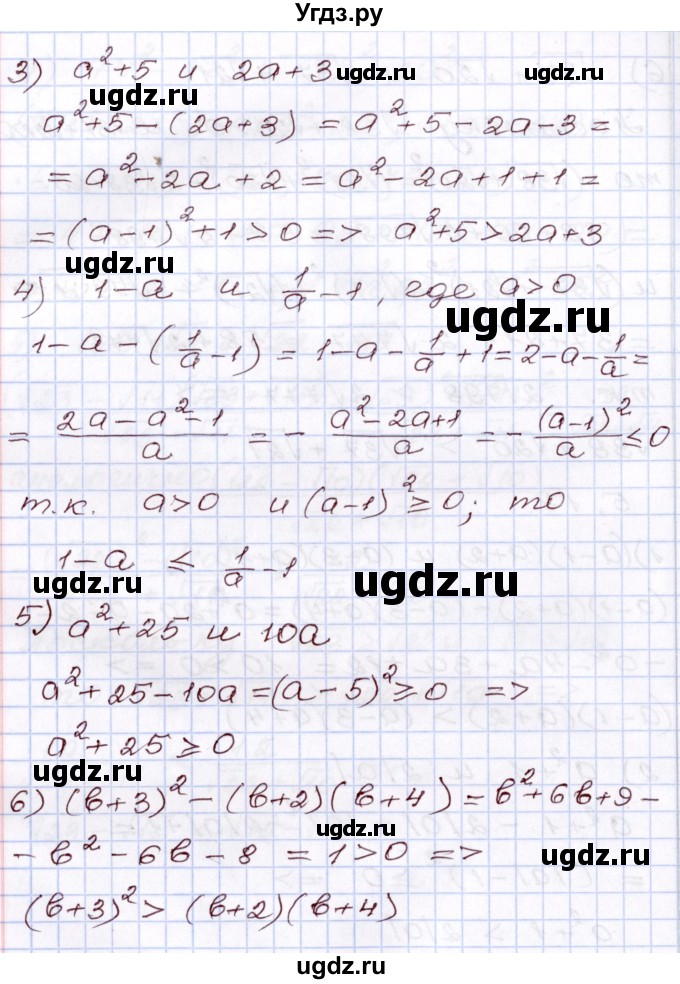 Угдз.ру
3) a²+5 и 2a+3 ugdz.ru ugdz.ru
ugdz.ru
a²+5-(2a+3) = a²+5-2a-3 =
= a²-2a+2 = a²-2a+1+1 =
= (a-1)²+1>0 => a²+5>2a+3
ugdz.ru
4) 1-a и 1/a -1, где a>0
ugdz.ru
1-a-(1/a -1) = 1-a-1/a+1 = 2-a-1/a =
= (2a-a²-1)/a = - (a²-2a+1)/a = - (a-1)²/a ≤0
т.к. a>0 и (a-1)²≥0; то
1-a ≤ 1/a -1
ugdz.ru ugdz.ru
5) a²+25 и 10a
a²+25-10a=(a-5)²≥0 =>
a²+25≥0
ugdz.ru
6) (в+3)²-(в+2)(в+4)=в²+6в+9-
ugdz.ru
-в²-6в-8 = 1>0 =>
ugdz.ru
(в+3)²> (в+2)(в+4)
ugdz.ru